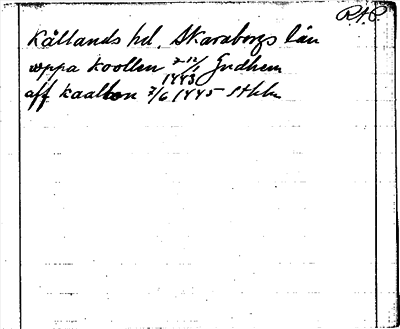 R.A.P.
Kållands hd. Skaraborgs län
uppa koollen 2-12/1 1443 Gudhem
aff kaalbon 3/6 1445 Sthlm